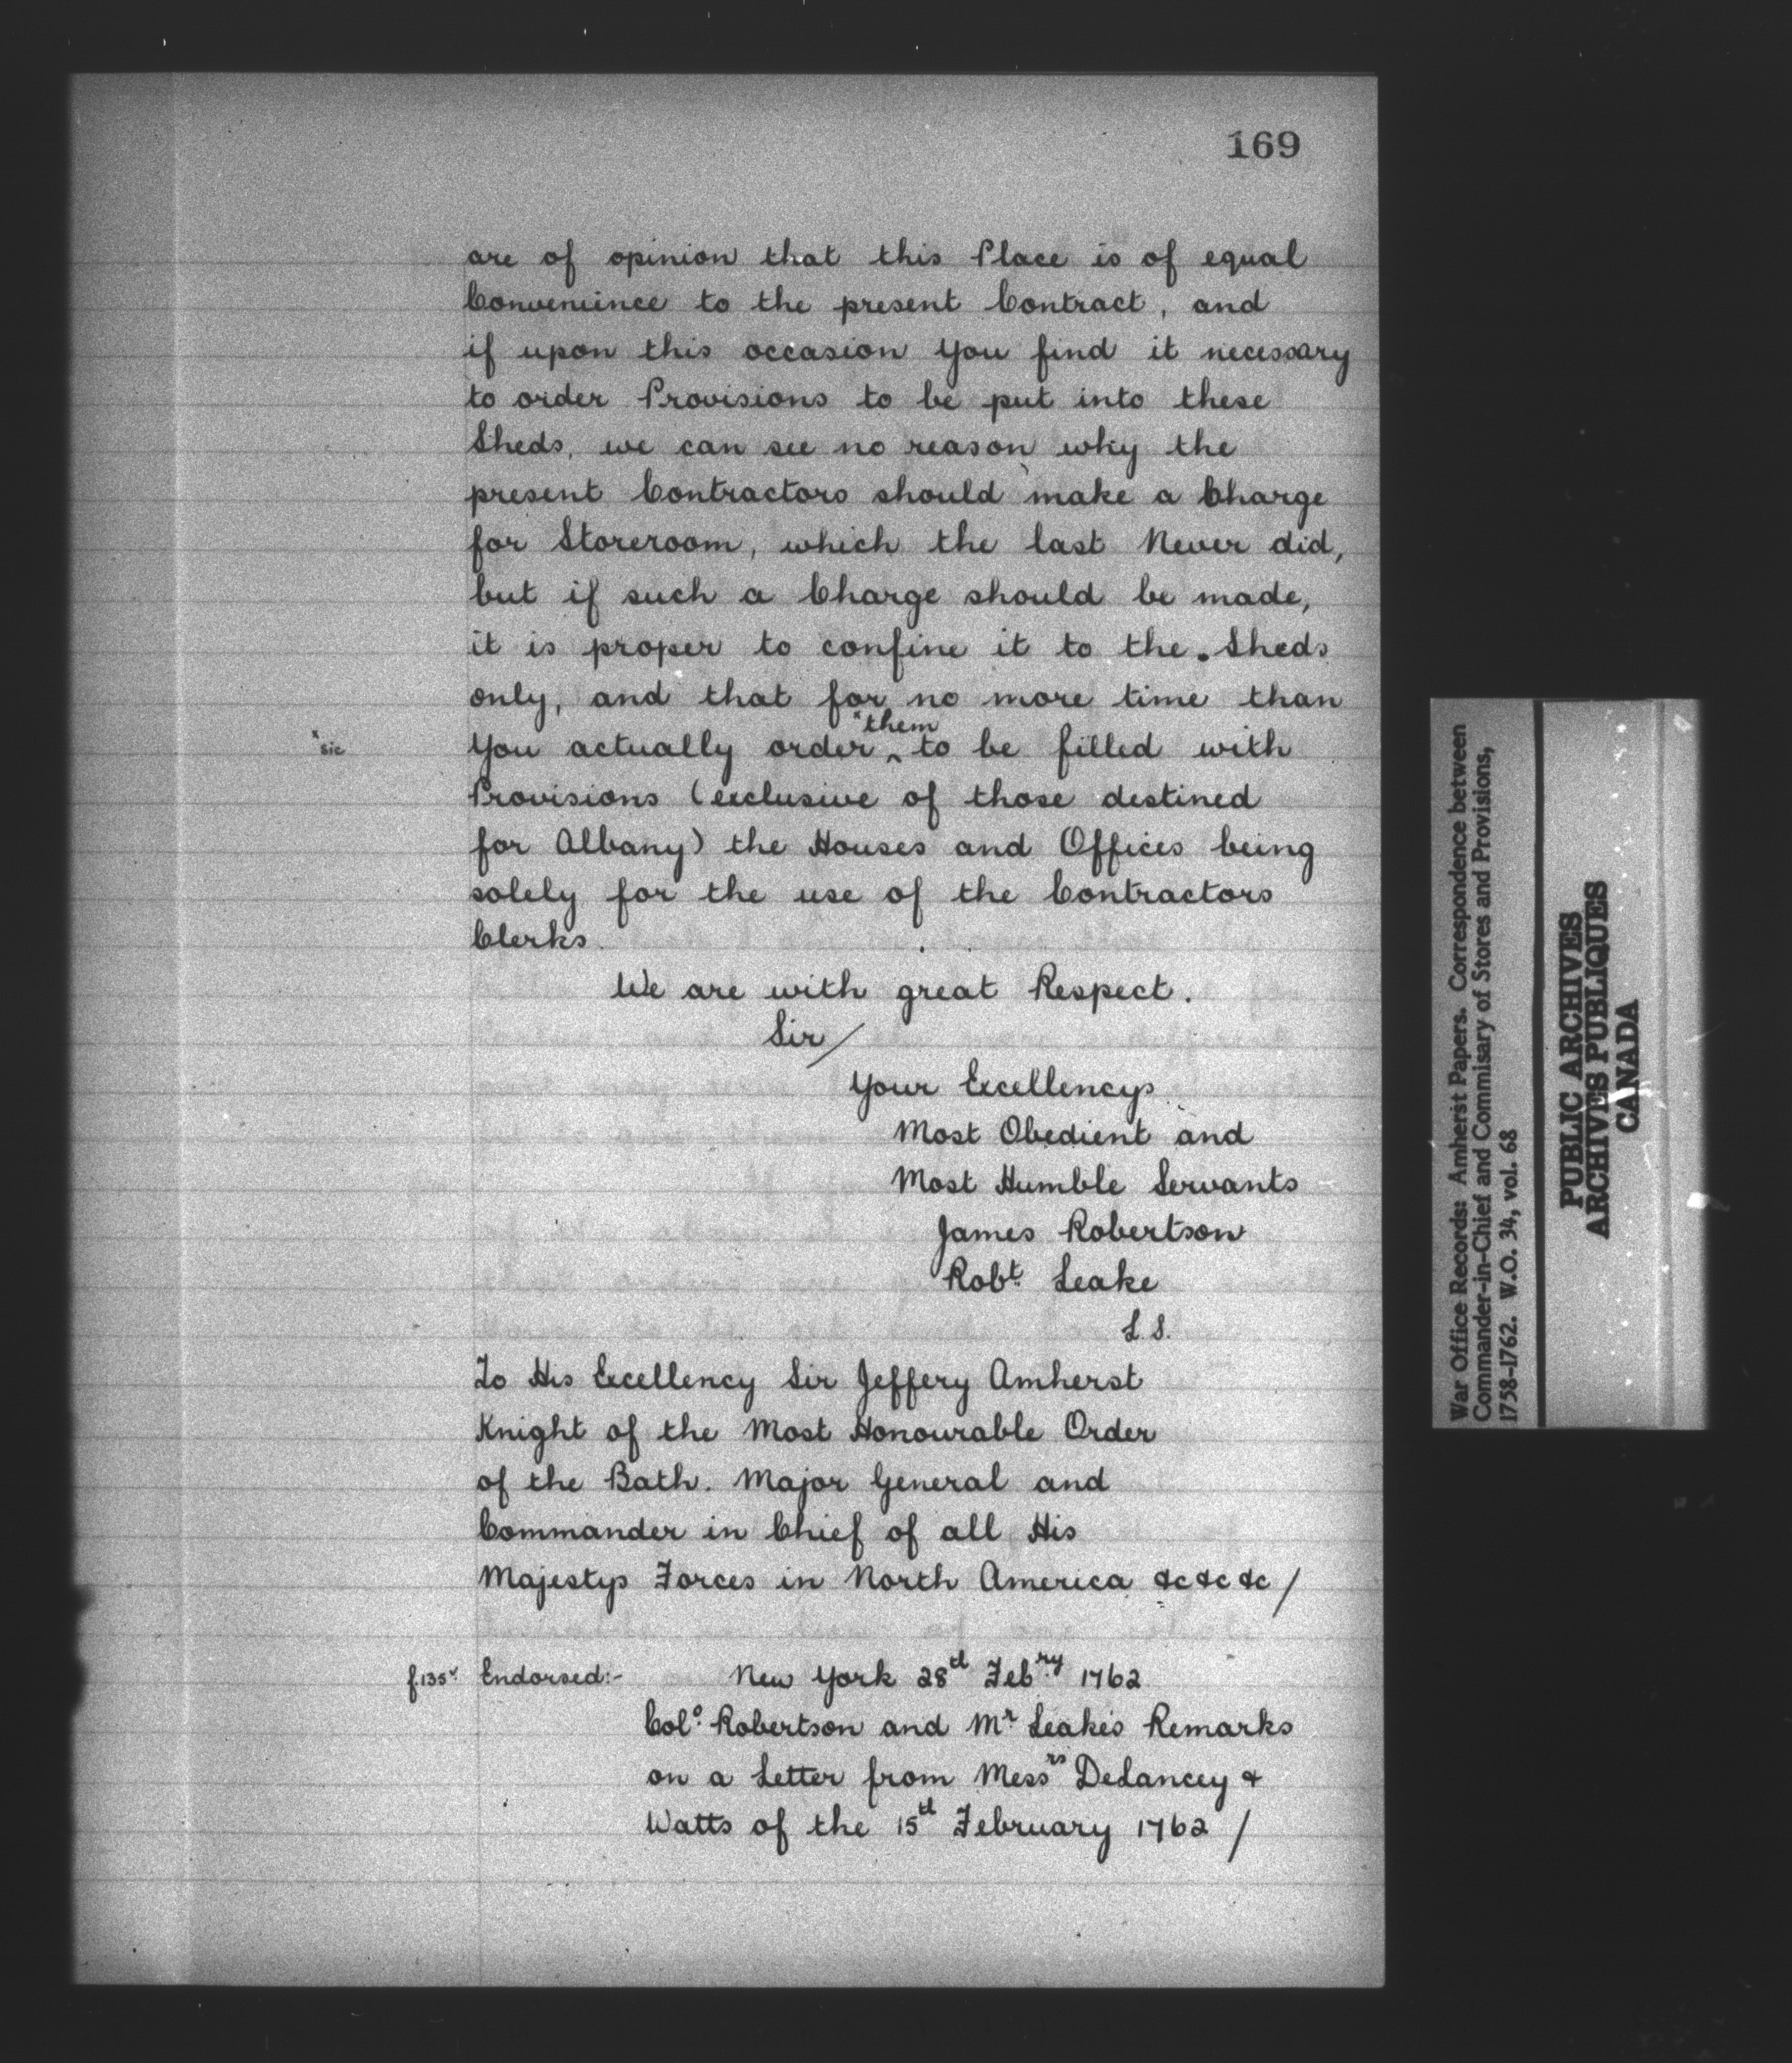 169
are of opinion that this Place is of equal
Convenience to the present Contract, and
if upon this occasion you find it necessary
to order Provisions to be put into these
Sheds, we can see no reason why the
present Contractors should make a Charge
for Storeroom, which the last Never did,
but if such a Charge should be made,
it is proper to confine it to the Sheds
only, and that for no more time than
ˣthem
ˣsic You actually order ‸ to be filled with
Provisions (exclusive of those destined
for Albany) the Houses and Offices being
solely for the use of the Contractors
Clerks.
We are with great Respect.
Sir/
Your Excellencys
Most Obedient and
Most Humble Servants
James Robertson
Robt. Leake
L S.
To His Excellency Sir Jeffery Amherst
Knight of the Most Honourable Order
of the Bath. Major General and
Commander in Chief of all His
Majestys Forces in North America &c &c &c /
f.135v Endorsed:- New York 28th Febry 1762
Colo. Robertson and Mr Leake's Remarks
on a Letter from Messrs DeLancey &
Watts of the 15th February 1762 /
War Office Records: Amherst Papers. Correspondence between
Commander-in-Chief and Commisary of Stores and Provisions,
1758-1762. W.O. 34, vol. 68
PUBLIC ARCHIVES
ARCHIVES PUBLIQUES
CANADA